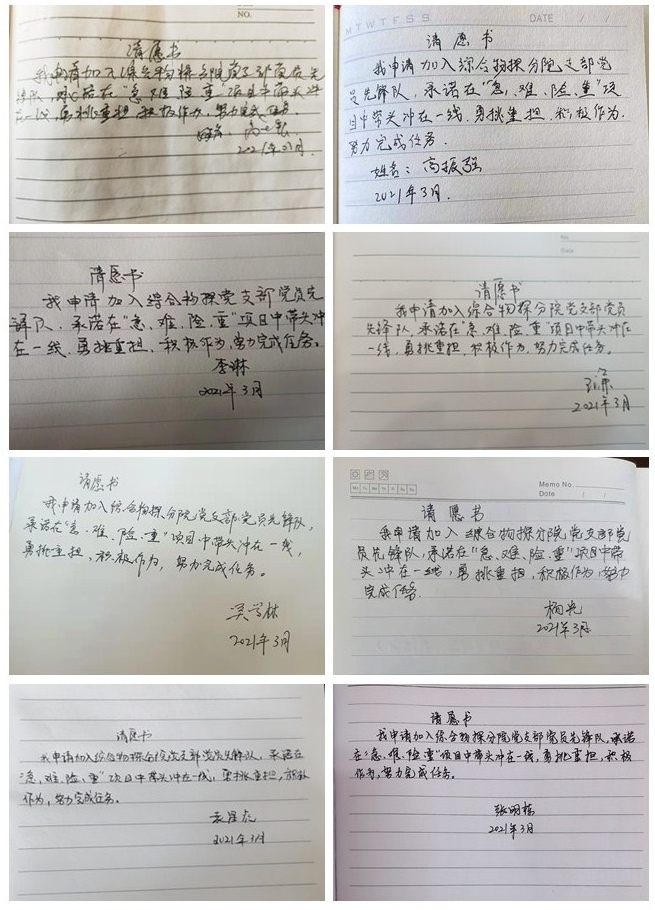 NO.
请愿书
我申请加入综合物探分院党支部党员先
锋队,承诺在"急、难、险、重"项目中带头冲
在一线,勇挑重担,积极作为,努力完成任务.
姓名:
2021年3月.
MTWTFSS
DATE / /
请愿书
我申请加入综合物探分院支部党
员先锋队,承诺在"急,难、险、重"项
目中带头冲在一线.勇挑重担,积极作为.
努力完成任务.
姓名:高振强
2021年3月.
请愿书
我申请加入综合物探党支部党员先
锋队.承诺在"急、难、险、重"项目中带头冲
在一线.勇挑重担、积极作为,努力完成任务。
李琳
2021年3月
No.
Date
请愿书
我申请加入综合物探分院党支部党员
先锋队,承诺在"急、难、险、重"项目中带头冲在
一线,勇挑重担,积极作为,努力完成任务。
2021年3月
请愿书
我申请加入综合物探分院党支部党员先锋队,
承诺在"急、难、险、重"项目中带头冲在一线,
勇挑重担、积极作为,努力完成任务。
吴学林
2021年3月
Memo No.
Date / /
请愿书
我申请加入综合物探分院党支部党
员先锋队,承诺在"急、难、险、重"项目中带
头冲在一线,勇挑重担,积极作为,努力
完成任务.
2021年3月
请愿书
我申请加入综合物探分院党支部党员先锋队,承诺在
"急、难、险、重"项目中带头冲在一线,勇挑重担,积极
作为,努力完成任务。
2021年3月
请愿书
我申请加入综合物探分院党支部党员先锋队,承诺
在"急、难、险、重"项目中带头冲在一线,勇挑重担,积极
作为,努力完成任务。
张明栋
2021年3月